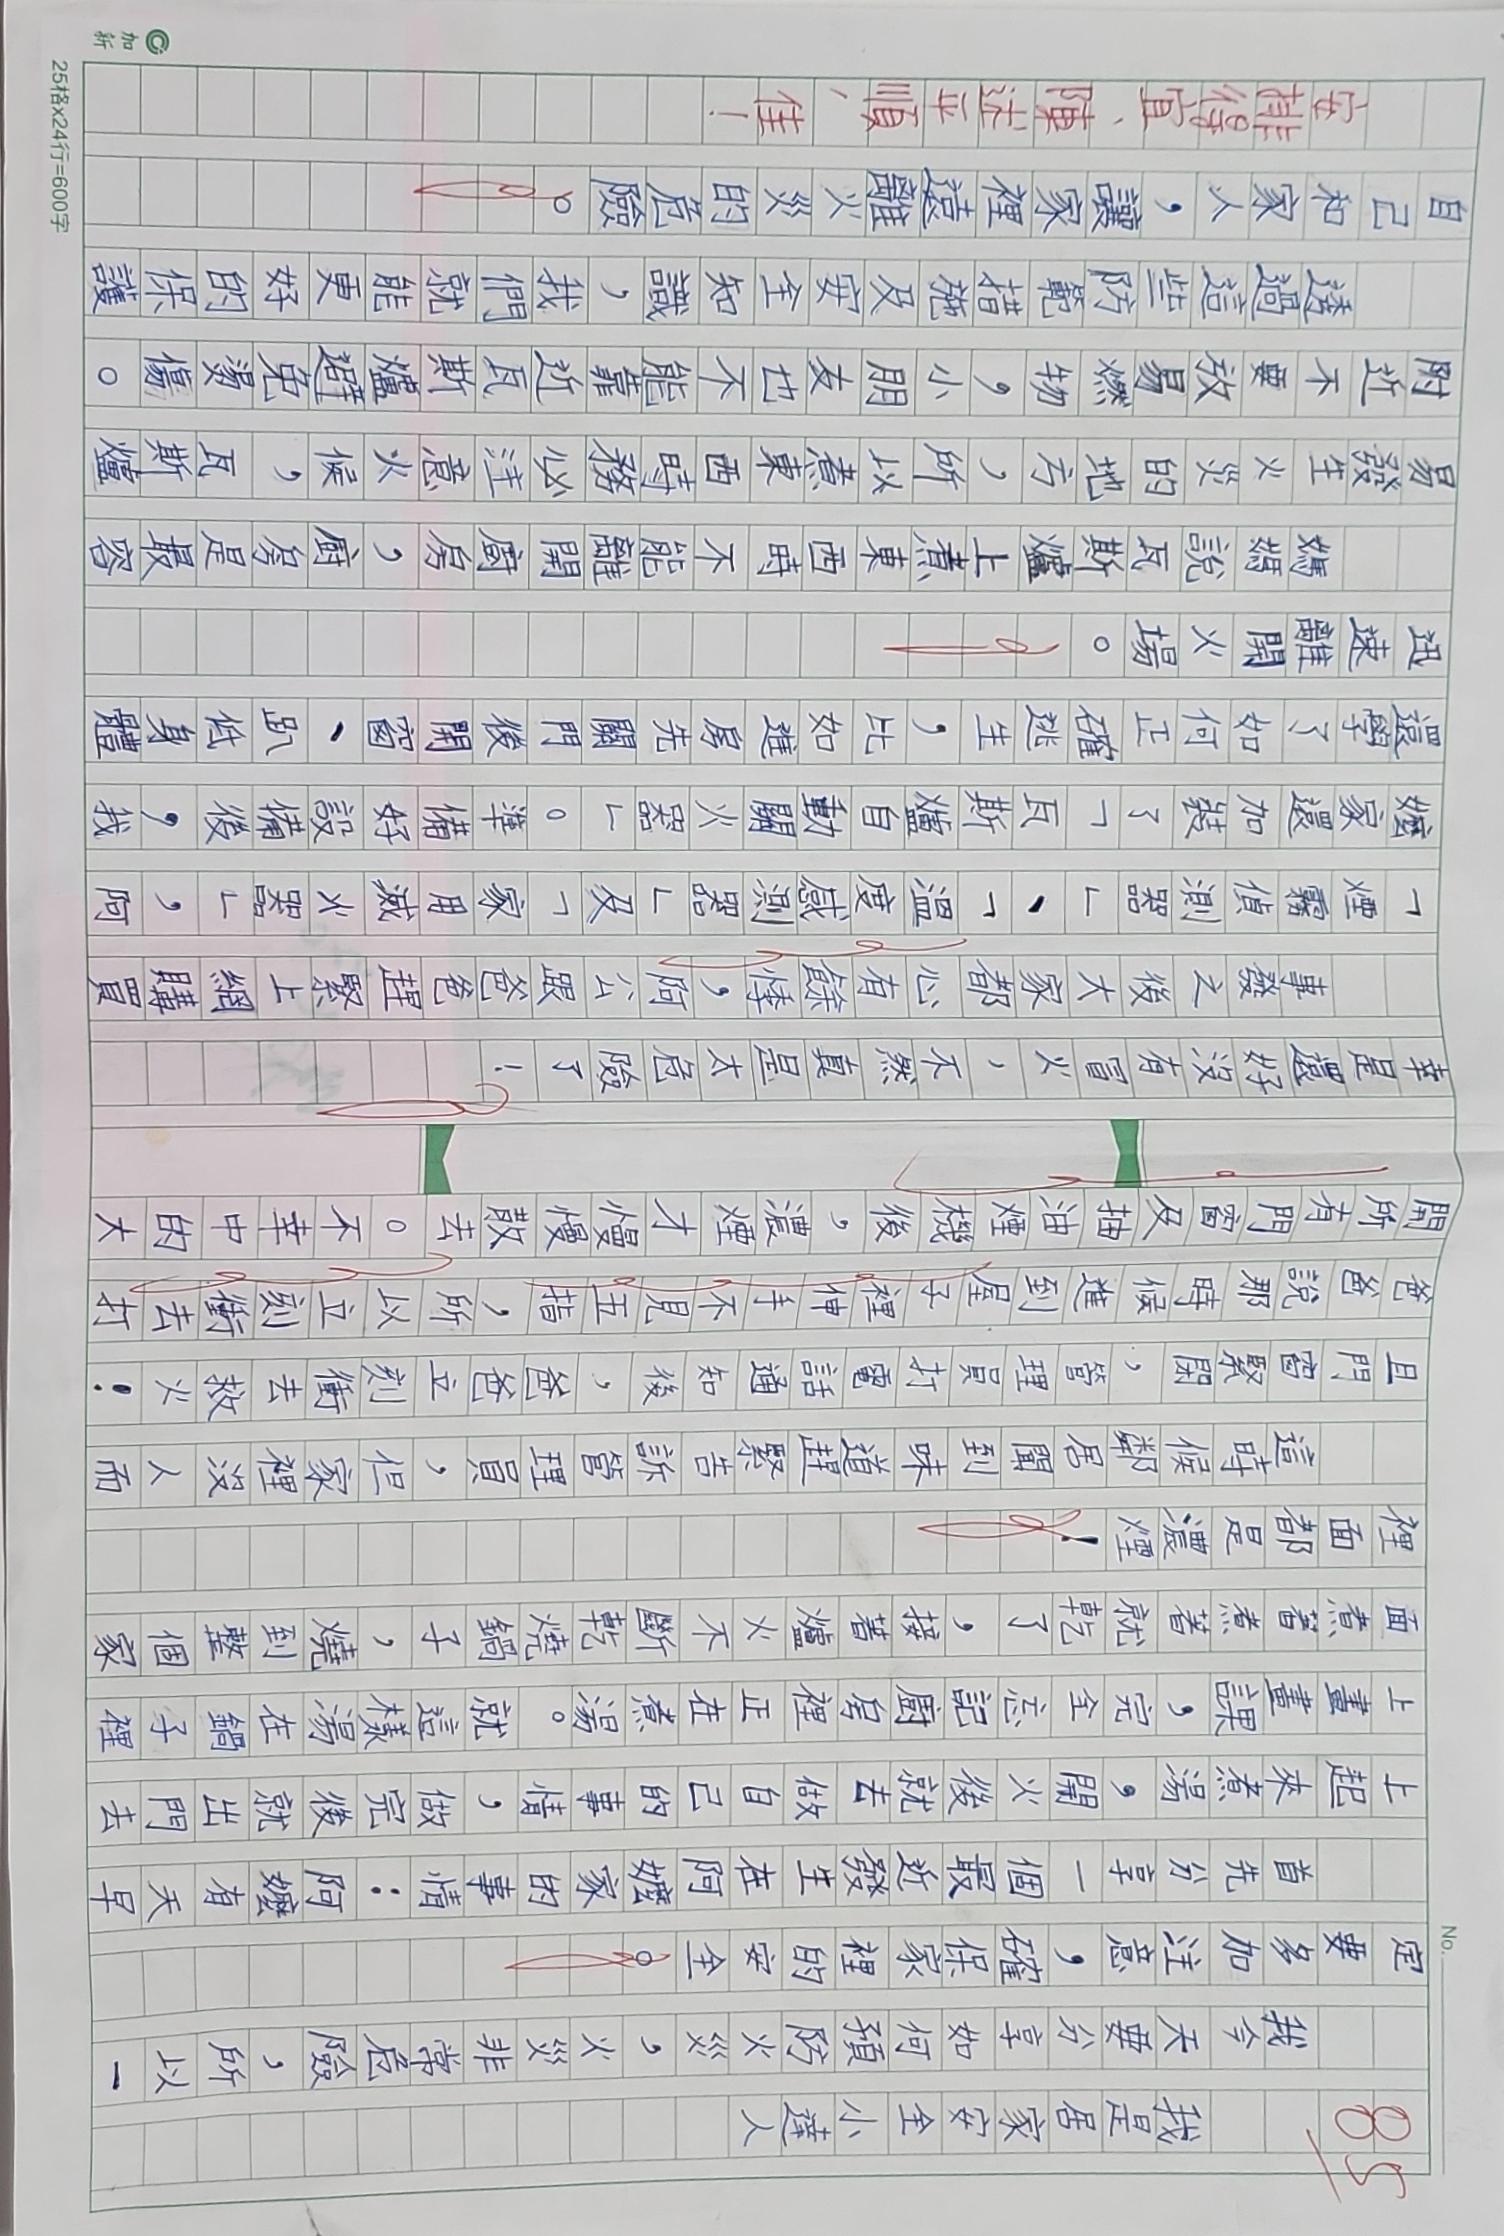 No.
85
我是居家安全小達人
我今天要分享如何預防火災,火災非常危險,所以一
定要多加注意,確保家裡的安全。
首先分享一個最近發生在阿嬤家的事情:阿嬤有天早
上起來煮湯,開火後就去做自己的事情,做完後就出門去
上畫畫課,完全忘記廚房裡正在煮湯。就這樣湯在鍋子裡
面煮著煮著就乾了,接著爐火不斷乾燒鍋子,燒到整個家
裡面都是濃煙!
這時候鄰居聞到味道趕緊告訴管理員,但家裡沒人而
且門窗緊閉,管理員打電話通知後,爸爸立刻衝去救火!
爸爸說那時候進到屋子裡伸手不見五指,所以立刻衝去打
開所有門窗及抽油煙機後,濃煙才慢慢散去。不幸中的大
幸是還好沒有冒火,不然真是太危險了!
事發之後大家都心有餘悸,阿公跟爸爸趕緊上網購買
「煙霧偵測器」、「溫度感測器」及「家用滅火器」,阿
嬤家還加裝了「瓦斯爐自動關火器」。準備好設備後,我
還學了如何正確逃生,比如進房先關門後開窗、趴低身體
迅速離開火場。
媽媽說瓦斯爐上煮東西時不能離開廚房,廚房是最容
易發生火災的地方,所以煮東西時務必注意火候,瓦斯爐
附近不要放易燃物,小朋友也不能靠近瓦斯爐避免燙傷。
透過這些防範措施及安全知識,我們就能更好的保護
自己和家人,讓家裡遠離火災的危險。
安排得宜、陳述平順,佳!
加新
25格x24行=600字